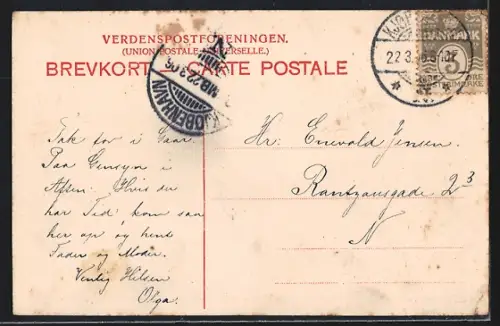 VERDENSPOSTFORENINGEN.
(UNION POSTALE UNIVERSELLE.)
BREVKORT. CARTE POSTALE
KJØBENHAVN
22.3.06
22.3.
DANMARK
3
ØRE
Tak for i Gaar
Paa Gensyn i
Aften. Hvis du
har Tid kom saa
her op og hent
Fader og Moder.
Venlig Hilsen
Olga.
Hr. Enevold Jensen.
Rantzausgade 2³
N